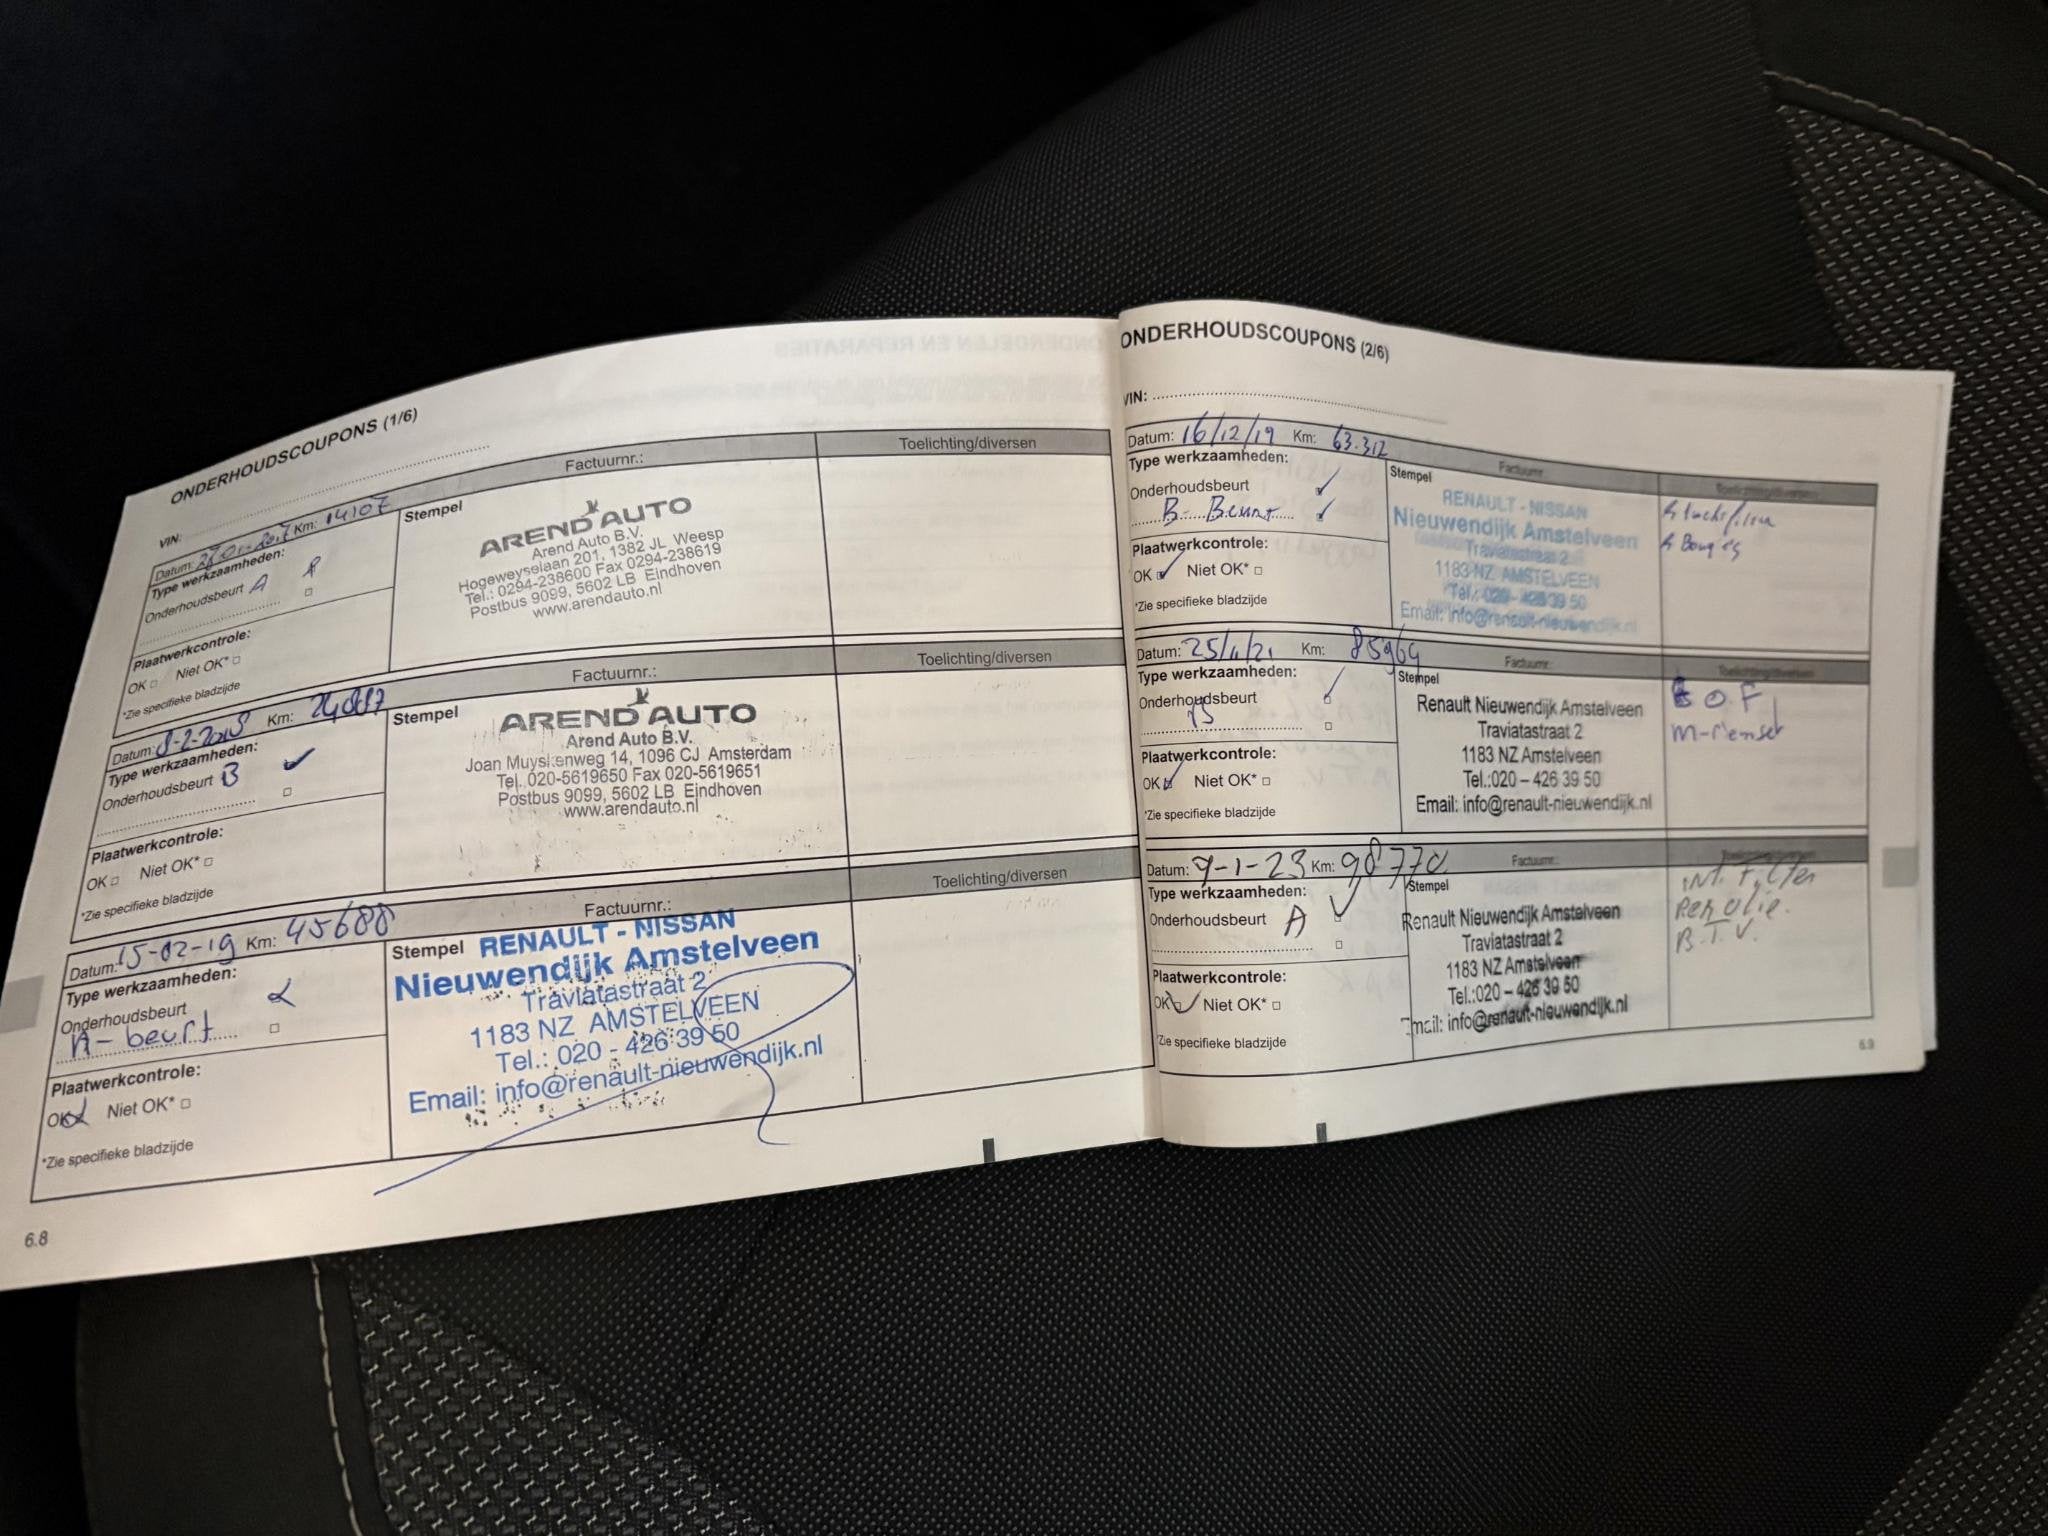 ONDERHOUDSCOUPONS (1/6)
VIN:
Datum: Km: 14107 Factuurnr.: Toelichting/diversen
Type werkzaamheden:
Onderhoudsbeurt A
Plaatwerkcontrole:
OK Niet OK*
*Zie specifieke bladzijde
Stempel
AREND AUTO
Arend Auto B.V.
Hogeweyselaan 201, 1382 JL Weesp
Tel.: 0294-238600 Fax 0294-238619
Postbus 9099, 5602 LB Eindhoven
www.arendauto.nl
Datum: 8-2-2018 Km: Factuurnr.: Toelichting/diversen
Type werkzaamheden:
Onderhoudsbeurt B
Plaatwerkcontrole:
OK Niet OK*
*Zie specifieke bladzijde
Stempel
AREND AUTO
Arend Auto B.V.
Joan Muyskenweg 14, 1096 CJ Amsterdam
Tel. 020-5619650 Fax 020-5619651
Postbus 9099, 5602 LB Eindhoven
www.arendauto.nl
Datum: 15-02-19 Km: 45688 Factuurnr.: Toelichting/diversen
Type werkzaamheden:
Onderhoudsbeurt
A-beurt
Plaatwerkcontrole:
OK Niet OK*
*Zie specifieke bladzijde
Stempel
RENAULT - NISSAN
Nieuwendijk Amstelveen
Traviatastraat 2
1183 NZ AMSTELVEEN
Tel.: 020 - 426 39 50
Email: info@renault-nieuwendijk.nl
6.8
ONDERHOUDSCOUPONS (2/6)
VIN:
Datum: 16/12/19 Km: 63.312 Factuurnr. Toelichting/diversen
Type werkzaamheden:
Onderhoudsbeurt
B-Beurt
Plaatwerkcontrole:
OK Niet OK*
*Zie specifieke bladzijde
Stempel
RENAULT - NISSAN
Nieuwendijk Amstelveen
Traviatastraat 2
1183 NZ AMSTELVEEN
Tel.: 020 - 426 39 50
Email: info@renault-nieuwendijk.nl
Bougies
Datum: Km: 85964 Factuurnr.: Toelichting/diversen
Type werkzaamheden:
Onderhoudsbeurt
B
Plaatwerkcontrole:
OK Niet OK*
*Zie specifieke bladzijde
Stempel
Renault Nieuwendijk Amstelveen
Traviatastraat 2
1183 NZ Amstelveen
Tel.:020 – 426 39 50
Email: info@renault-nieuwendijk.nl
O.F.
Datum: 9-1-23 Km: 98770 Factuurnr.: Toelichting/diversen
Type werkzaamheden:
Onderhoudsbeurt A
Plaatwerkcontrole:
OK Niet OK*
*Zie specifieke bladzijde
Stempel
Renault Nieuwendijk Amstelveen
Traviatastraat 2
1183 NZ Amstelveen
Tel.:020 – 426 39 50
Email: info@renault-nieuwendijk.nl
int. Filter
Rem olie.
B.T.V.
6.9